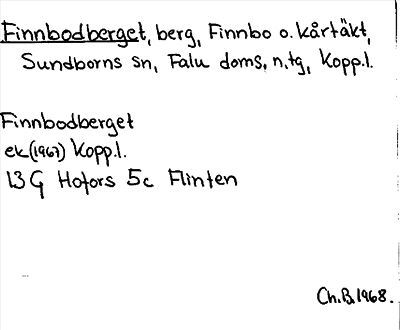 Finnbodberget, berg, Finnbo o. kårtäkt,
Sundborns sn, Falu doms. n. tg, Kopp. l.
Finnbodberget
ek (1967) Kopp. l.
13 G Hofors 5c Flinten
Ch. B. 1968.